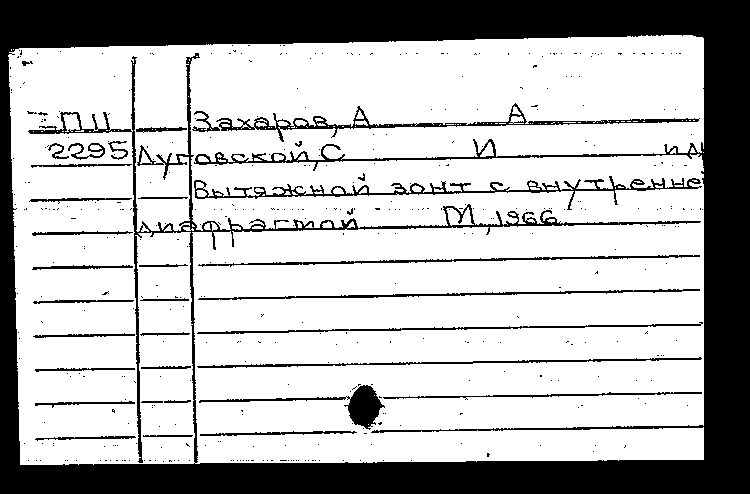 ПII Захаров, А А
2295 Луговской, С И и др
Вытяжной зонт с внутренней
диафрагмой М., 1966